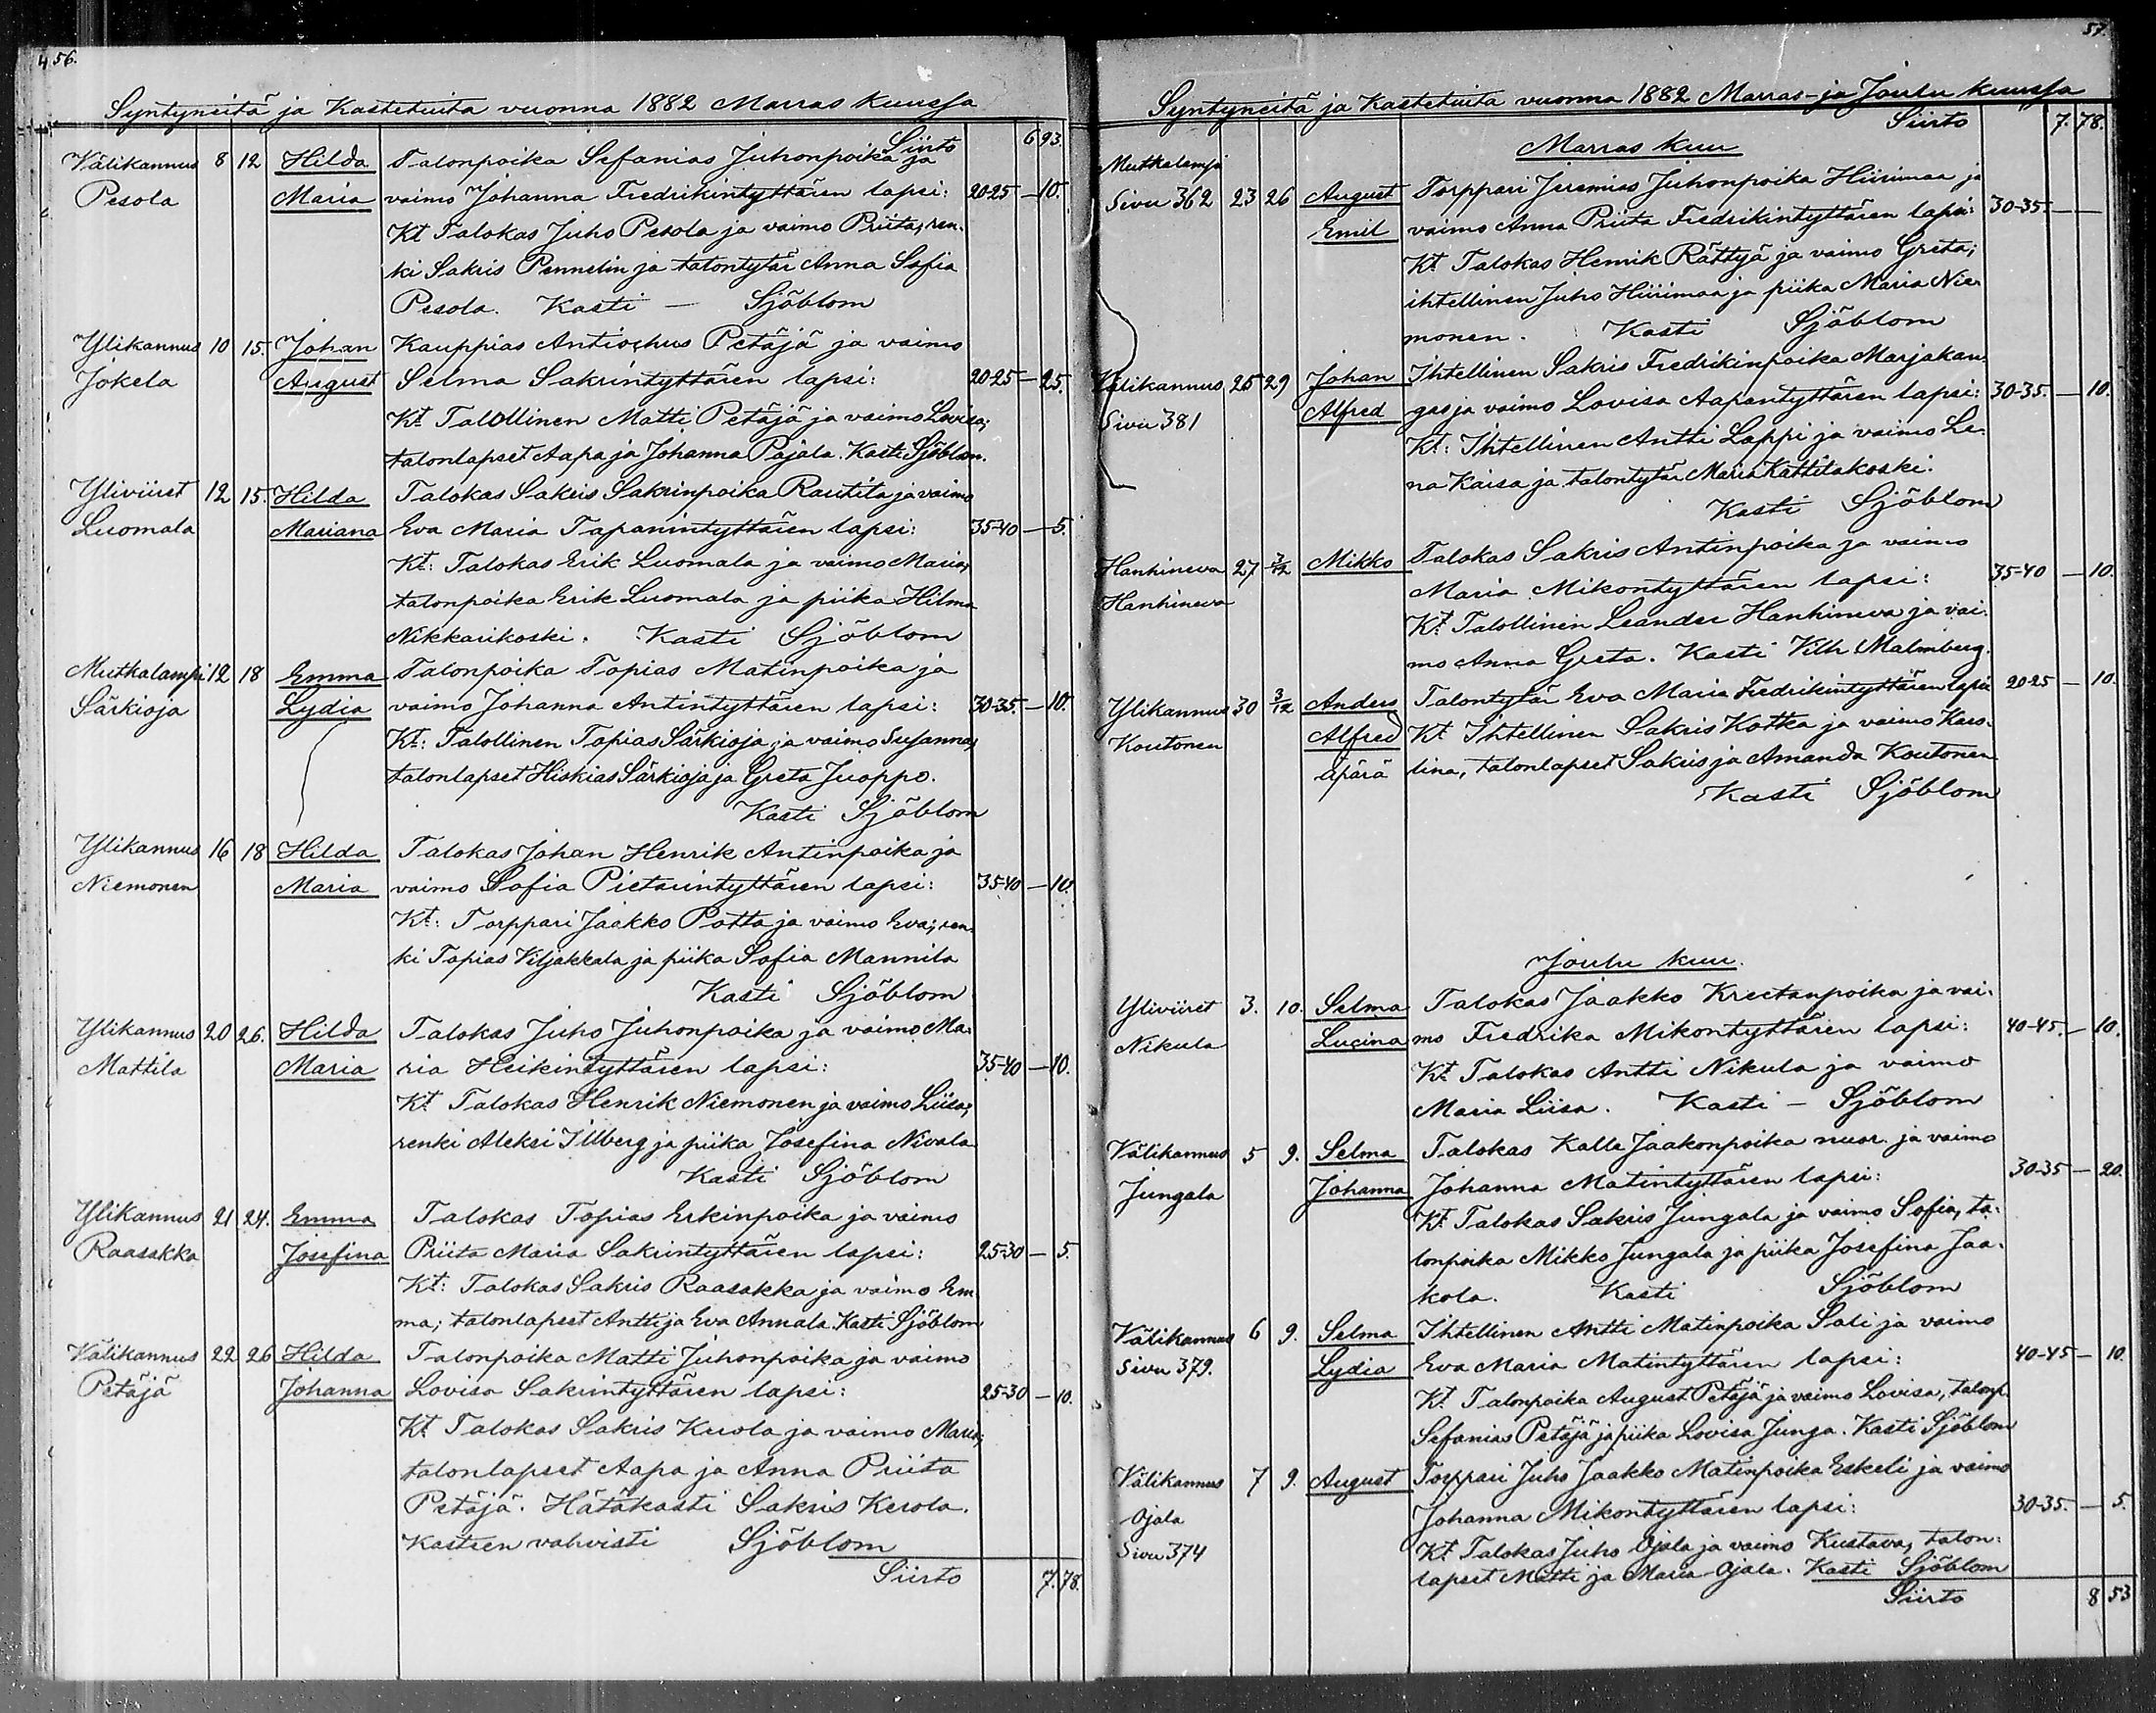 456.
Syntyneitä ja Kastetuita vuonna 1882 Marras kuussa
Siirto 6 93.
Välikannus 8 12 Hilda Talonpoika Sefanias Juhonpoika ja
Pesola Maria vaimo Johanna Fredrikintyttären lapsi: 20-25 — 10.
Kt Talokas Juho Pesola ja vaimo Priita, ren-
ki Sakris Pennelin ja talontytär Anna Sofia
Pesola. Kasti — Sjöblom
Ylikannus 10 15. Johan Kauppias Antiochus Petäjä ja vaimo
Jokela August Selma Sakrintyttären lapsi: 20-25 — 25.
Kt Talollinen Matti Petäjä ja vaimo Lovisa;
talonlapset Aapa ja Johanna Pajala. Kasti Sjöblom.
Yliviiret 12 15. Hilda Talokas Sakris Sakrinpoika Rautila ja vaimo
Luomala Mariana Eva Maria Tapanintyttären lapsi: 35-40 — 5.
Kt: Talokas Erik Luomala ja vaimo Maria,
talonpoika Erik Luomala ja piika Hilma
Nikkarikoski. Kasti Sjöblom
Mutkalampi 12 18 Emma Talonpoika Topias Matinpoika ja
Särkioja Lydia vaimo Johanna Antintyttären lapsi: 30-35. — 10.
Kt: Talollinen Topias Särkioja ja vaimo Susanna,
talonlapset Hiskias Särkioja ja Greta Juoppo.
Kasti Sjöblom
Ylikannus 16 18 Hilda Talokas Johan Henrik Antinpoika ja
Niemonen Maria vaimo Sofia Pietarintyttären lapsi: 35-40 — 10.
Kt: Torppari Jaakko Potta ja vaimo Eva; ren-
ki Topias Viljakkala ja piika Sofia Mannila
Kasti Sjöblom
Ylikannus 20 26. Hilda Talokas Juho Juhonpoika ja vaimo Ma-
Mattila Maria ria Heikintyttären lapsi: 35-40 — 10.
Kt Talokas Henrik Niemonen ja vaimo Liisa;
renki Aleksi Illberg ja piika Josefina Nivala
Kasti Sjöblom
Ylikannus 21 24. Emma Talokas Topias Erkinpoika ja vaimo
Raasakka Josefina Priita Maria Sakrintyttären lapsi: 25-30 — 5.
Kt: Talokas Sakris Raasakka ja vaimo Em-
ma; talonlapset Antti ja Eva Annala. Kasti Sjöblom
Välikannus 22 26 Hilda Talonpoika Matti Juhonpoika ja vaimo
Petäjä Johanna Lovisa Sakrintyttären lapsi: 25-30 — 10.
Kt Talokas Sakris Kerola ja vaimo Maria;
talonlapset Aapa ja Anna Priita
Petäjä. Hätäkasti Sakris Kerola.
Kasteen vahvisti Sjöblom
Siirto 7.78.
57.
Syntyneitä ja Kastetuita vuonna 1882 Marras- ja Joulu kuussa
Siirto 7.78.
Marras kuu
Mutkalampi
Sivu 362 23 26 August Torppari Jeremias Juhonpoika Hiirimaa ja
Emil vaimo Anna Priita Fredrikintyttären lapsi: 30-35. — —
Kt Talokas Henrik Rättyä ja vaimo Greta;
ihtellinen Juho Hiirimaa ja piika Maria Nie-
monen. Kasti Sjöblom
Välikannus 25 29 Johan Ihtellinen Sakris Fredrikinpoika Marjakan-
Sivu 381 Alfred gas ja vaimo Lovisa Aapantyttären lapsi: 30-35. — 10.
Kt: Ihtellinen Antti Lappi ja vaimo Le-
na Kaisa ja talontytär Maria Kattilakoski.
Kasti Sjöblom
Hanhineva 27 3/12 Mikko Talokas Sakris Antinpoika ja vaimo
Hanhineva Maria Mikontyttären lapsi: 35-40 — 10.
Kt. Talollinen Leander Hanhineva ja vai-
mo Anna Greta. Kasti Vilh Malmberg.
Ylikannus 30 3/12 Anders Talontytär Eva Maria Fredrikintyttären lapsi 20-25 — 10.
Koutonen Alfred Kt Ihtellinen Sakris Kotka ja vaimo Karo-
äpärä lina, talonlapset Sakris ja Amanda Koutonen
Kasti Sjöblom
Joulu kuu.
Yliviiret 3. 10. Selma Talokas Jaakko Krectanpoika ja vai-
Nikula Lucina mo Fredrika Mikontyttären lapsi: 40-45. — 10.
Kt Talokas Antti Nikula ja vaimo
Maria Liisa. Kasti — Sjöblom
Välikannus 5 9. Selma Talokas Kalle Jaakonpoika nuor. ja vaimo
Jungala Johanna Johanna Matintyttären lapsi: 30-35 — 20.
Kt. Talokas Sakris Jungala ja vaimo Sofia, ta-
lonpoika Mikko Jungala ja piika Josefina Jaa-
kola. Kasti Sjöblom
Välikannus 6 9. Selma Ihtellinen Antti Matinpoika Sali ja vaimo
Sivu 379. Lydia Eva Maria Matintyttären lapsi: 40-45 — 10.
Kt. Talonpoika August Petäjä ja vaimo Lovisa, talonp.
Sefanias Petäjä ja piika Lovisa Junga. Kasti Sjöblom
Välikannus 7 9. August Torppari Juho Jaakko Matinpoika Eskeli ja vaimo
Ojala Johanna Mikontyttären lapsi: 30-35. — 5.
Sivu 374 Kt Talokas Juho Ojala ja vaimo Kustava, talon-
lapset Matti ja Maria Ojala. Kasti Sjöblom
Siirto 8 53